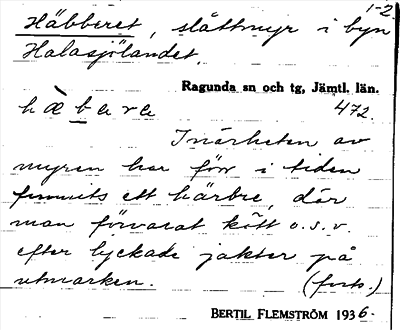 1-2.
Häbberet, slåttmyr i byn
Halasjölandet.
Ragunda sn och tg, Jämtl. län.
hæ̀bere 472.
I närheten av
myren har förr i tiden
funnits ett härbre, där
man förvarat kött o.s.v.
efter lyckade jakter på
utmarken. (forts.)
BERTIL FLEMSTRÖM 1936.